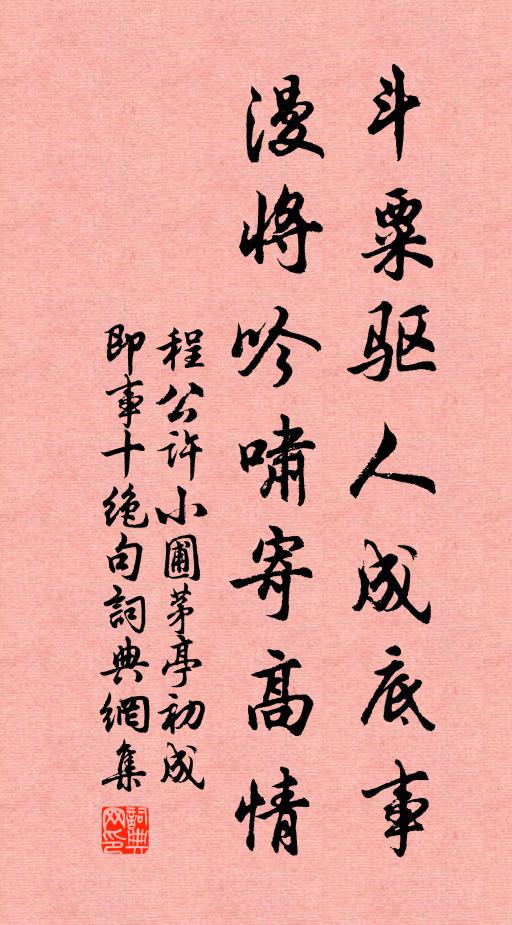 斗粟驱人成底事
漫将吟啸寄高情
程公许小圃茅亭初成
即事十絶句詞典網集
詞典网印